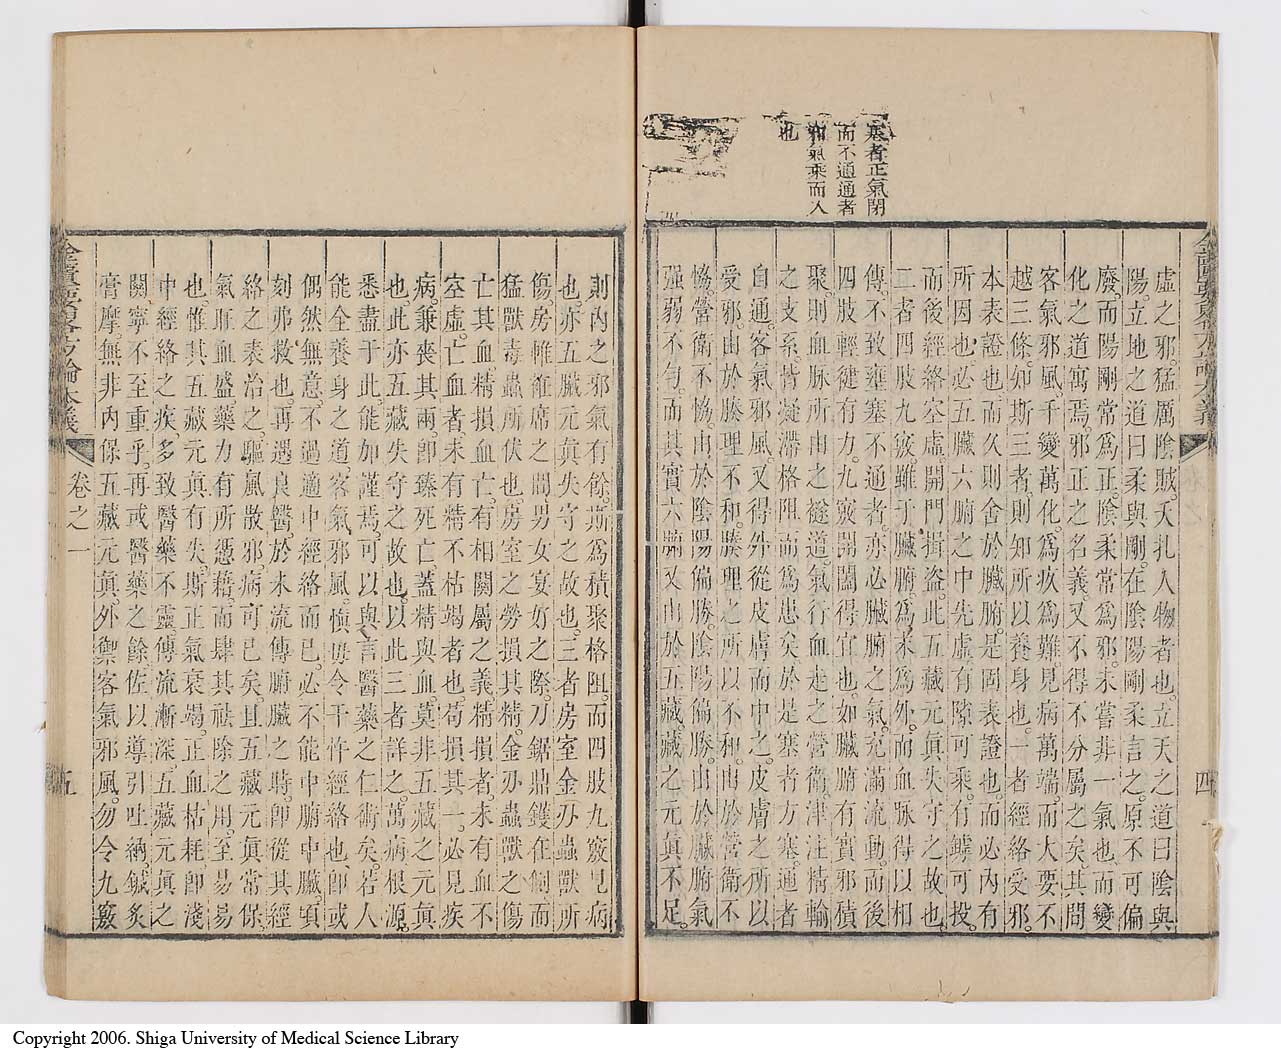 塞者正氣閉
而不通通者
氣乘而入
也
虛之邪猛厲陰賊夭扎人物者也立天之道曰陰與
陽立地之道曰柔與剛在陰陽剛柔言之原不可偏
廢而陽剛常爲正陰柔常爲邪未嘗非一氣也而變
化之道寓焉邪正之名義又不得不分屬之矣其間
客氣邪風千變萬化爲疢爲難見病萬端而大要不
越三條知斯三者則知所以養身也一者經絡受邪
本表證也而久則舍於臟腑是固表證也而必內有
所因也必五臟六腑之中先虛有隙可乘有罅可投
而後經絡空虛開門揖盜此五藏元眞失守之故也
二者四肢九竅雖于臟腑爲末爲外而血脉得以相
傳不致壅塞不通者亦必臟腑之氣充滿流動而後
四肢輕健有力九竅開闔得宜也如臟腑有實邪積
聚則血脉所由之襚道氣行血走之營衞津注精輸
之支系皆凝滯格阻而爲患矣於是塞者方塞通者
自通客氣邪風又得外從皮膚而中之皮膚之所以
受邪由於腠理不和腠理之所以不和由於營衞不
恊營衞不恊由於陰陽偏勝陰陽偏勝由於臟腑氣
强弱不勻而其實六腑又由於五藏藏之元眞不足
則內之邪氣有餘斯爲積聚格阻而四肢九竅見病
也亦五臟元眞失守之故也三者房室金刃蟲獸所
傷房帷衽席之間男女宴好之際刀鋸鼎鑊在側而
猛獸毒蟲所伏也房室之勞損其精金刃蟲獸之傷
亡其血精損血亡有相關屬之義精損者未有血不
空虛亡血者未有精不枯竭者也苟損其一必見疾
病兼喪其兩卽臻死亡蓋精與血莫非五藏之元眞
也此亦五藏失守之故也以此三者詳之萬病根源
悉盡于此能加謹焉可以與言醫藥之仁術矣若人
能全養身之道客氣邪風愼毋令干忤經絡也卽或
偶然無意不過適中經絡而已必不能中腑中臟頃
刻弗救也再遇良醫於未流傳腑臟之時卽從其經
絡之表治之驅風散邪病可已矣且五藏元眞常保
氣旺血盛藥力有所憑藉而肆其祛除之用至易易
也惟其五藏元眞有失斯正氣衰竭正血枯耗卽淺
中經絡之疾多致醫藥不靈傳流漸深五藏元眞之
關寧不至重乎再或醫藥之餘佐以導引吐納鍼炙
膏摩無非內保五藏元眞外禦客氣邪風勿令九竅
金匱要略方論本義
卷之一
四
五
Copyright 2006. Shiga University of Medical Science Library